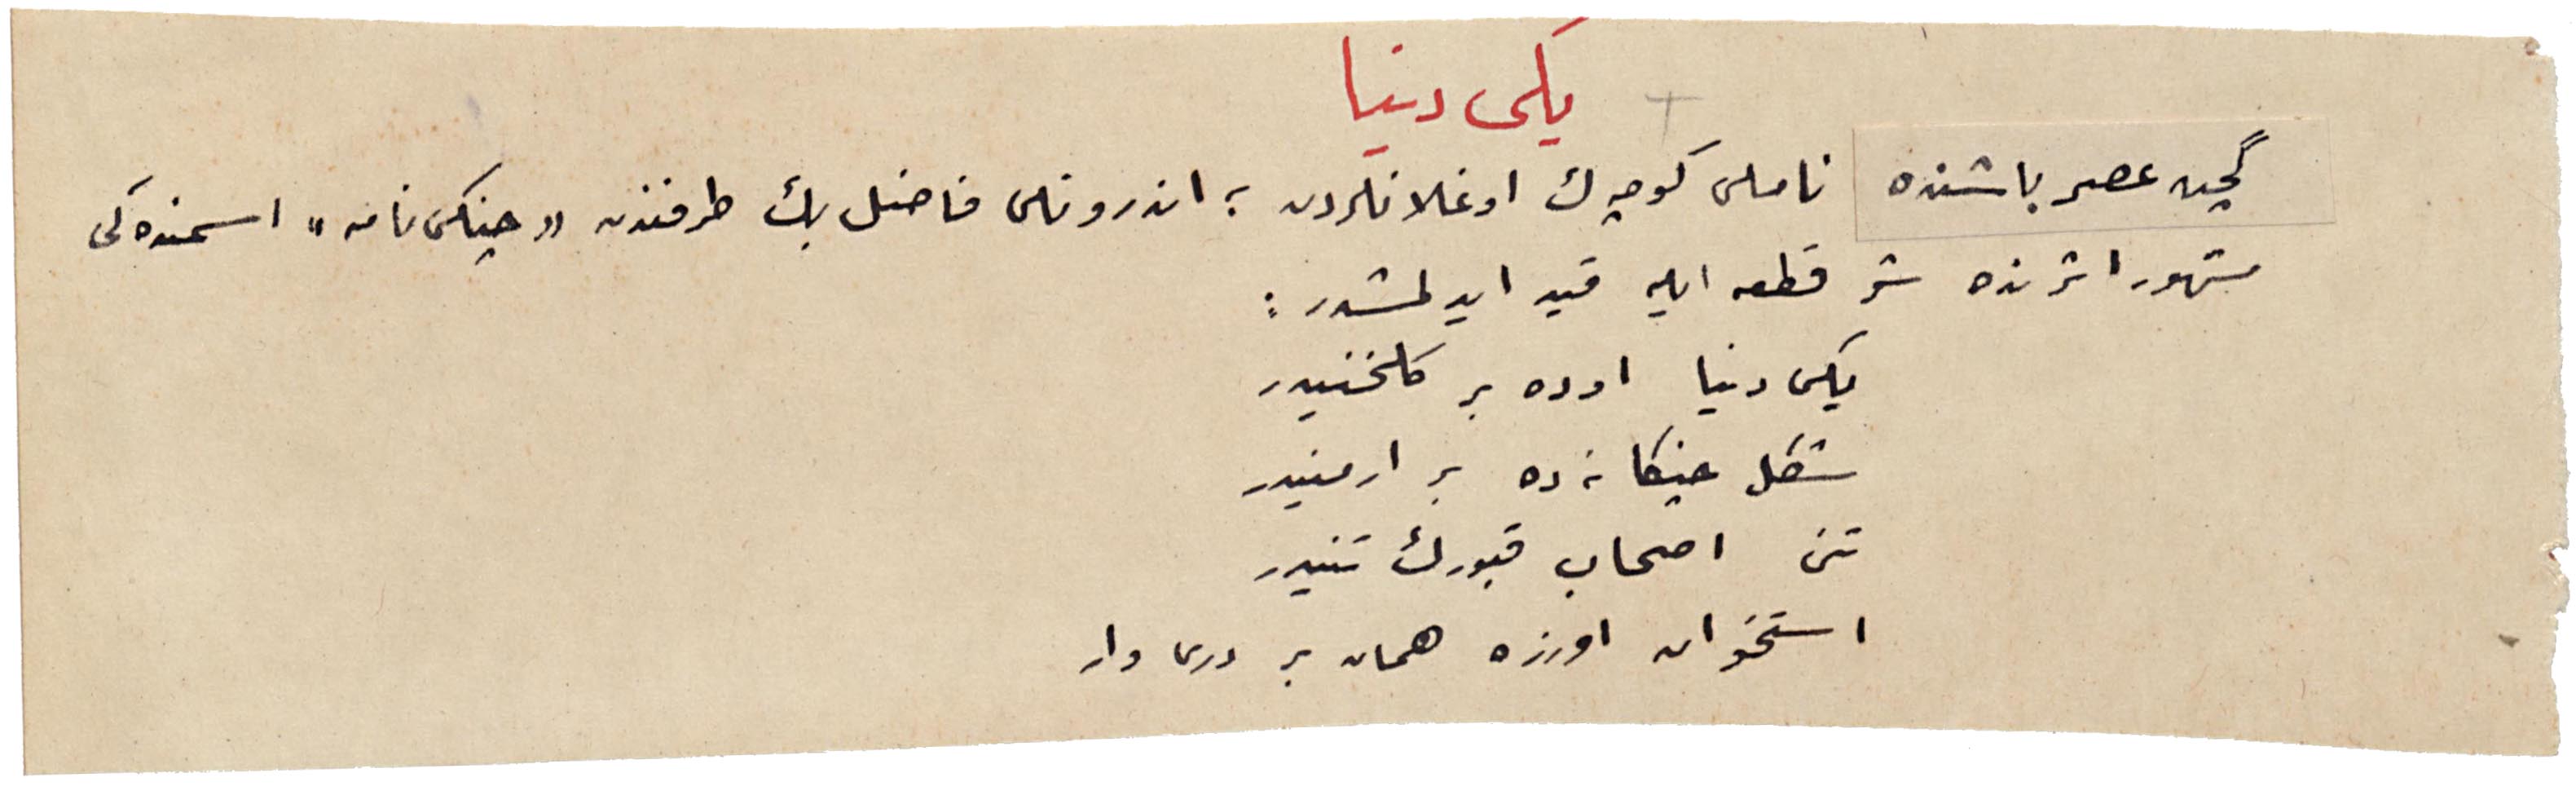 یکی دنیا
گچن عصر باشنده ناملی كوچك اوغلانلردن ؛ اندرونلی فاضل بك طرفندن «چنكی نامه» اسمنده‌كی
مشهور اثرنده شو قطعه ایله قید ایدلمشدر :
یكی دنیا اوده بر كلخنیدر
شكل چنكانه ده بر ارمنیدر
تنی اصحاب قبورك تنیدر
استخوان اوزره همان بر دری وار